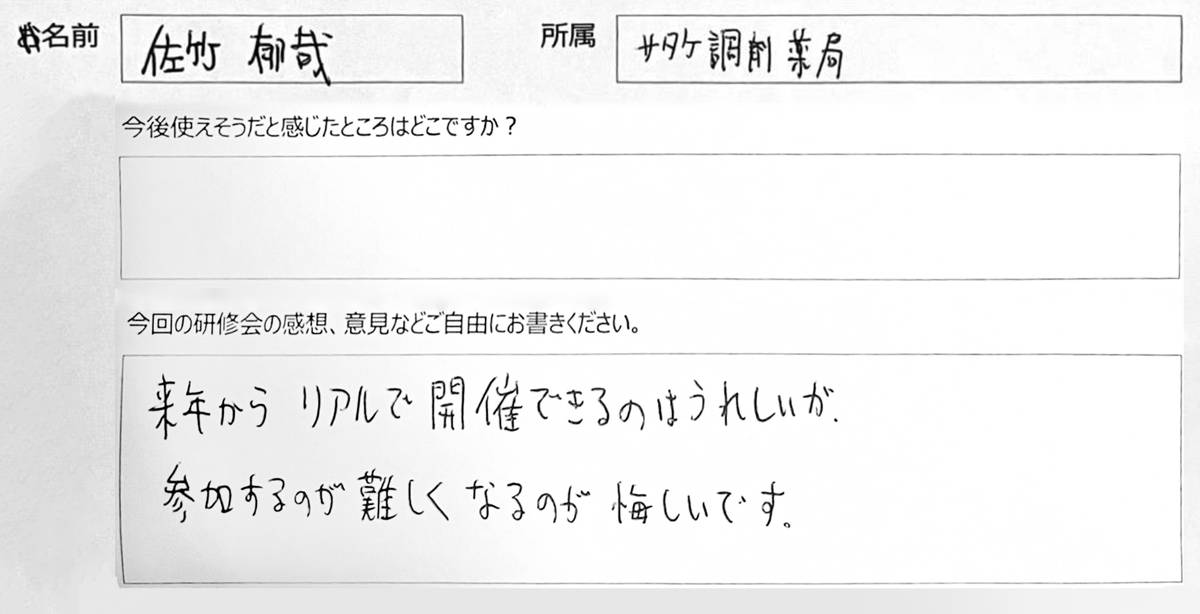 お名前 佐竹 郁哉 所属 サタケ調剤薬局
今後使えそうだと感じたところはどこですか？
今回の研修会の感想、意見などご自由にお書きください。
来年から リアルで開催できるのはうれしいが、
参加するのが難しくなるのが悔しいです。